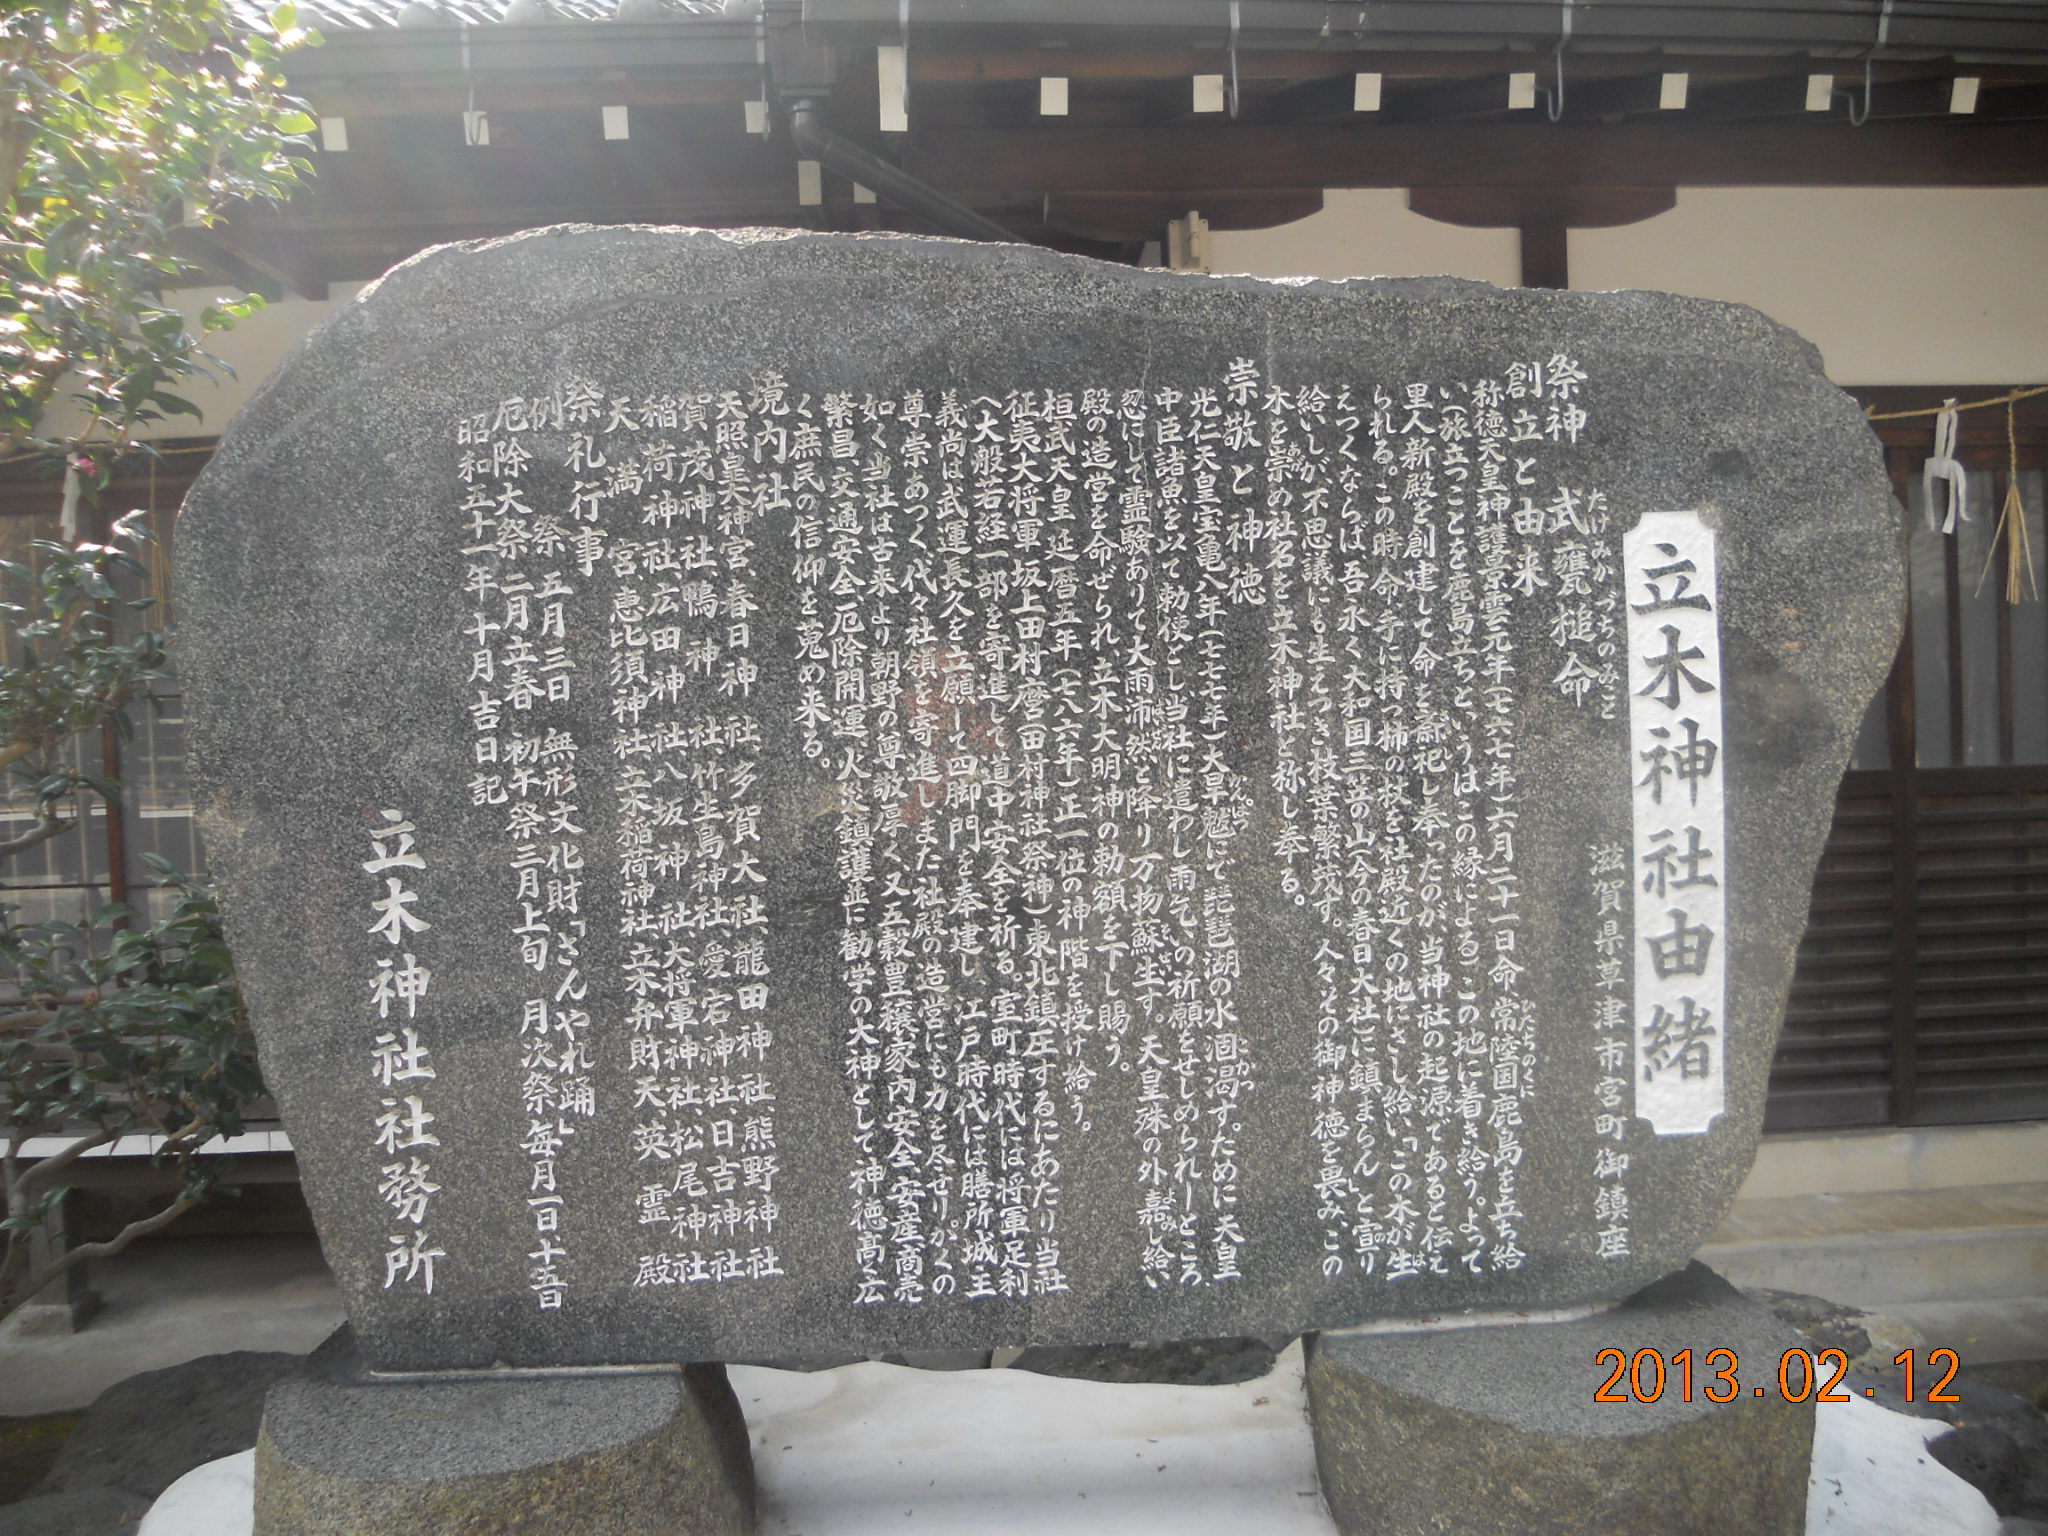 立木神社由緒
滋賀県草津市宮町御鎮座
祭神 武甕槌命
たけみかづちのみこと
創立と由来
称徳天皇神護景雲元年(七六七年)六月二十一日命常陸国鹿島を立ち給
ひたちのくに
い(旅立つことを鹿島立ちというはこの縁による)この地に着き給う。よって
里人新殿を創建して命を斎祀し奉ったのが、当神社の起源であると伝え
られる。この時、命手に持つ柿の杖を社殿近くの地にさし給い「この木が生
は
えつくならば、吾永く大和国三笠の山(今の春日大社)に鎮まらん」と宣り
のり
給いしが、不思議にも生えつき枝葉繁茂す。人々その御神徳を畏み、この
木を崇め社名を立木神社と称し奉る。
あが
崇敬と神徳
光仁天皇宝亀八年(七七七年)大旱魃にて琵琶湖の水涸渇す。ために天皇
かんばつ
こかつ
中臣諸魚を以て勅使とし、当社に遣わし雨乞いの祈願をせしめられしところ
忽にして霊験ありて大雨沛然と降り万物蘇生す。天皇殊の外嘉し給い
はいぜん
そせい
よみ
殿の造営を命ぜられ、立木大明神の勅額を下し賜う。
桓武天皇延暦五年(七八六年)正一位の神階を授け給う。
征夷大将軍坂上田村麿(田村神社祭神)東北鎮圧するにあたり当社
へ大般若経一部を寄進して道中安全を祈る。室町時代には将軍足利
義尚は武運長久を立願して四脚門を奉建し、江戸時代には膳所城主
尊崇あつく、代々社領を寄進し、また社殿の造営にも力を尽せり。かくの
如く当社は古来より朝野の尊敬厚く、又五穀豊穣、家内安全、安産、商売
繁昌、交通安全、厄除開運、火災鎮護並に勧学の大神として神徳高く広
く庶民の信仰を蒐め来る。
境内社
天照皇大神宮、春日神社、多賀大社、龍田神社、熊野神社
賀茂神社、鴨神社、竹生島神社、愛宕神社、日吉神社
稲荷神社、広田神社、八坂神社、大将軍神社、松尾神社
天満宮、恵比須神社、立木稲荷神社、立木弁財天、英霊殿
祭礼行事
例祭 五月三日 無形文化財「さんやれ踊」
厄除大祭 二月立春、初午祭三月上旬 月次祭毎月一日、十五日
昭和五十一年十月吉日記
立木神社社務所
2013.02.12